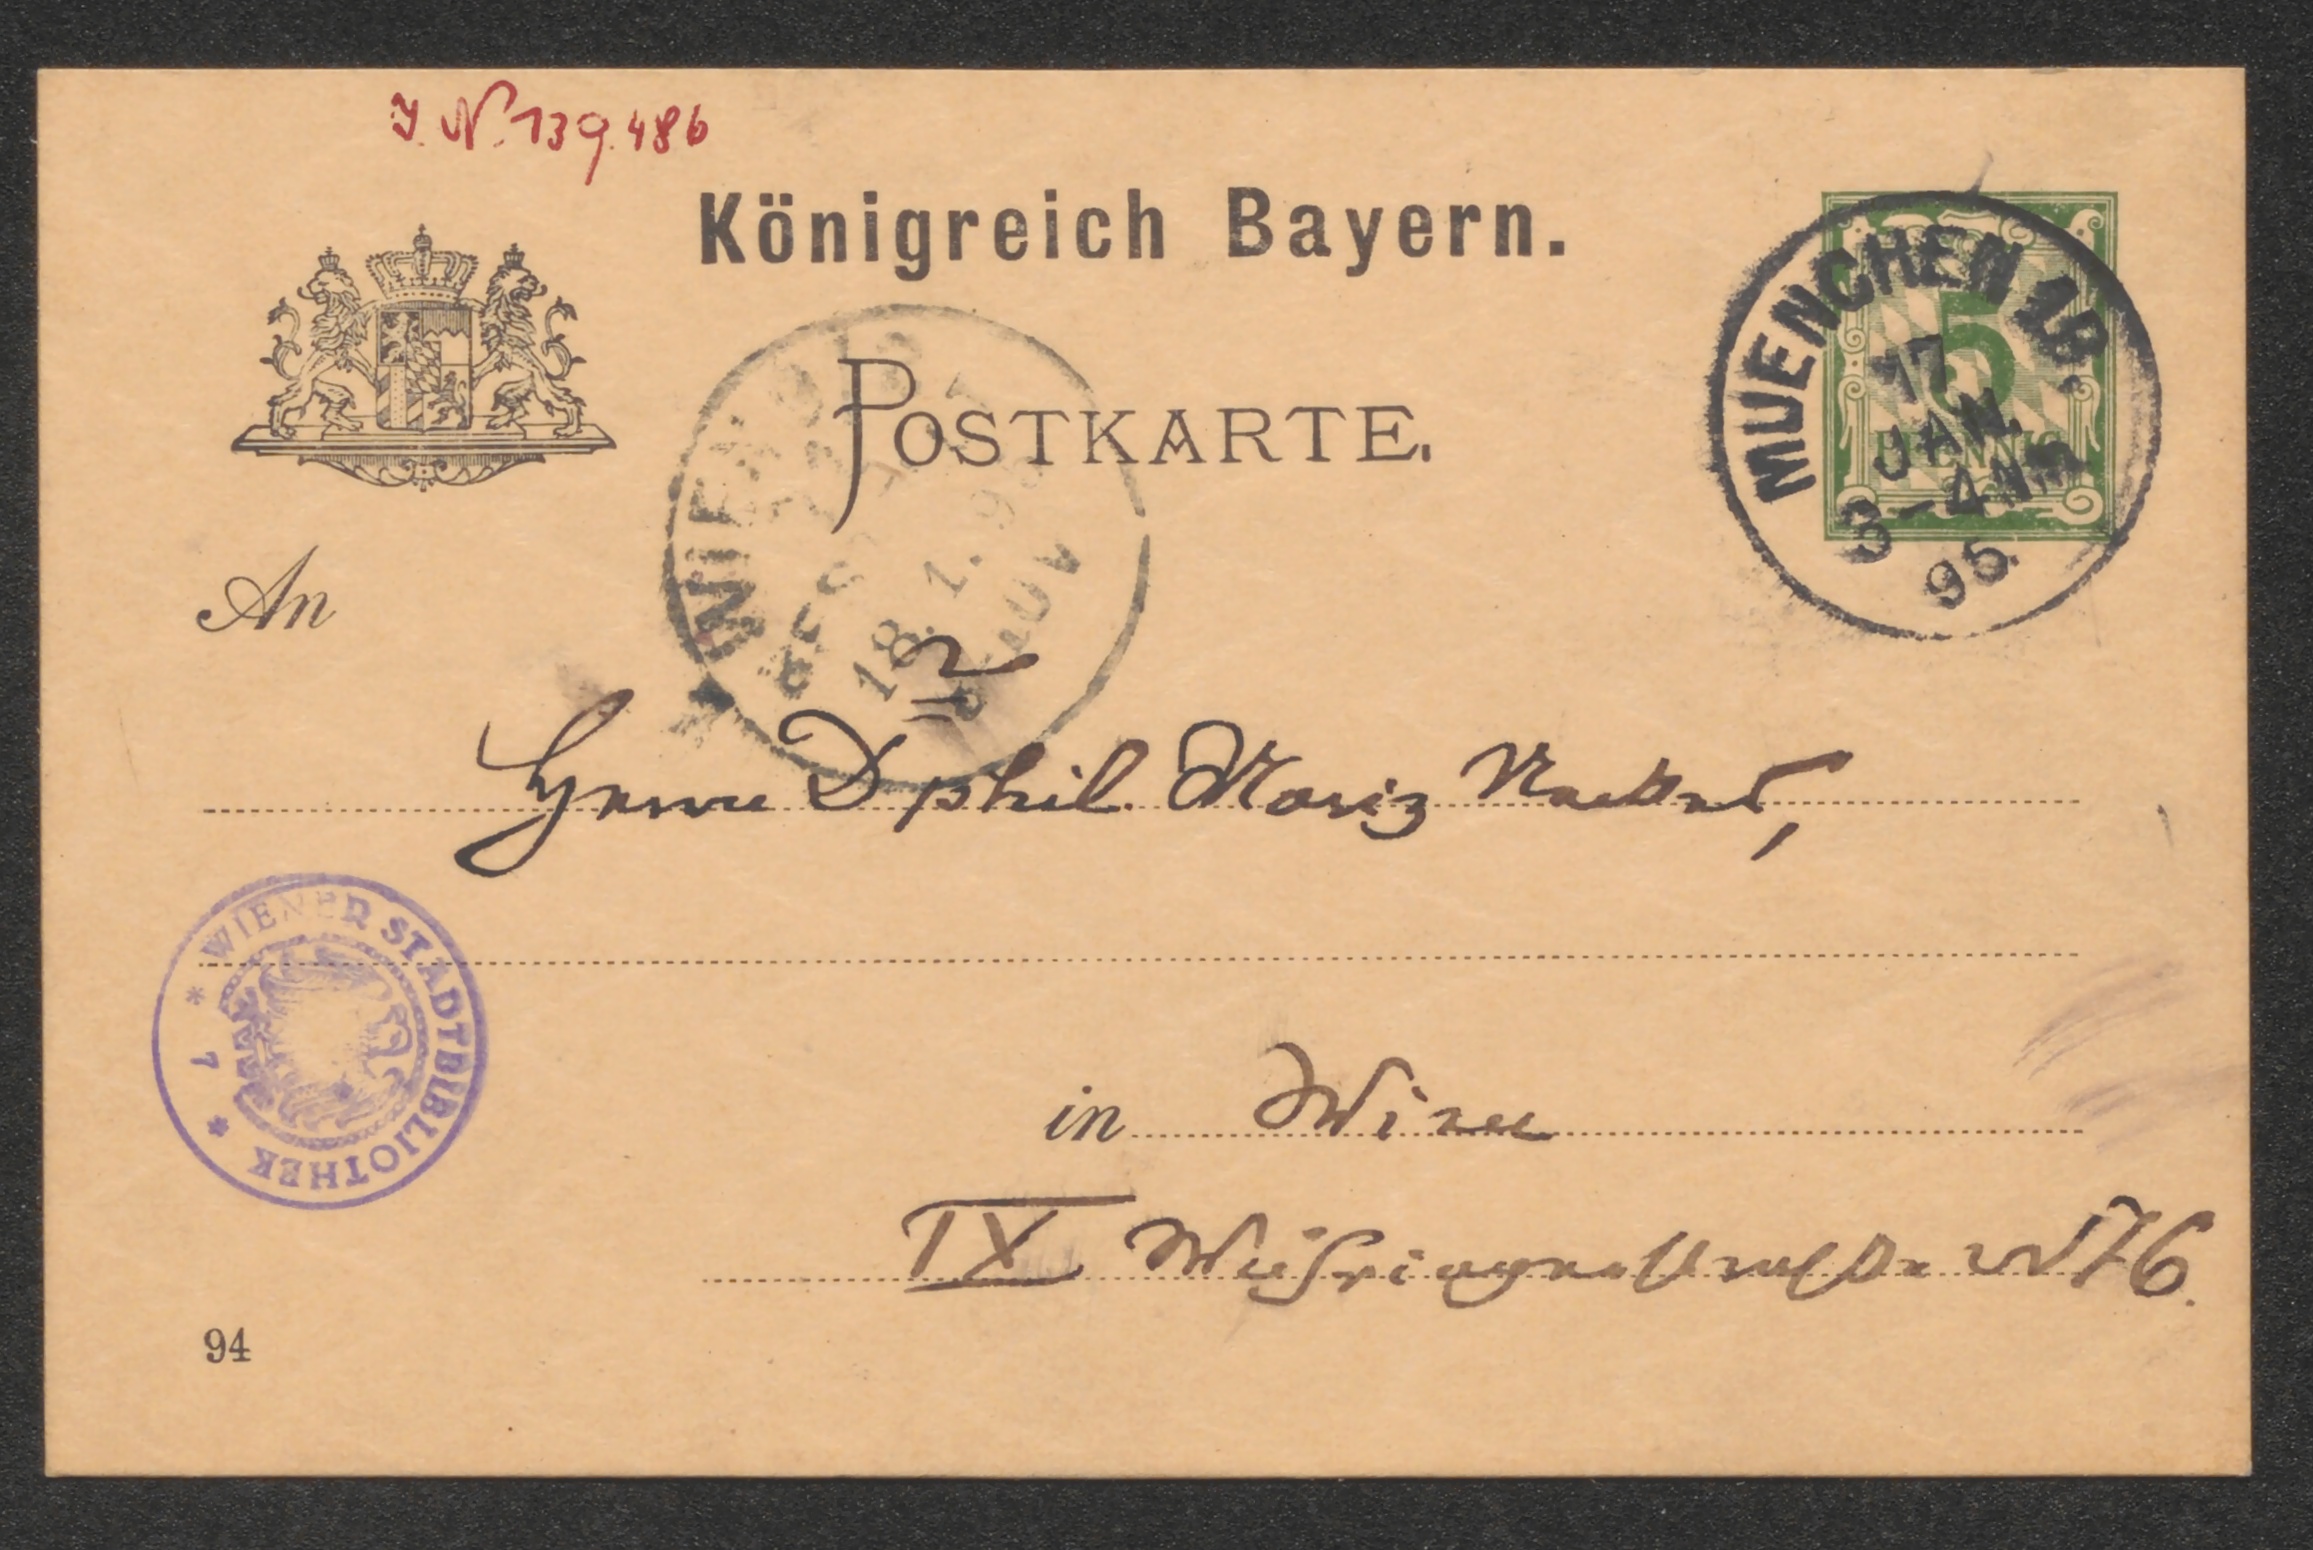 J. N. 139.486
Königreich Bayern.
POSTKARTE.
5
PFENNIG
MUENCHEN I.B.
17
JAN.
3-4 N
95.
WIEN
BESTELLT
18. 1. 95
An
Herrn D phil. Moriz Necker,
WIENER STADTBIBLIOTHEK
* 7 *
in Wien
IX 76.
94